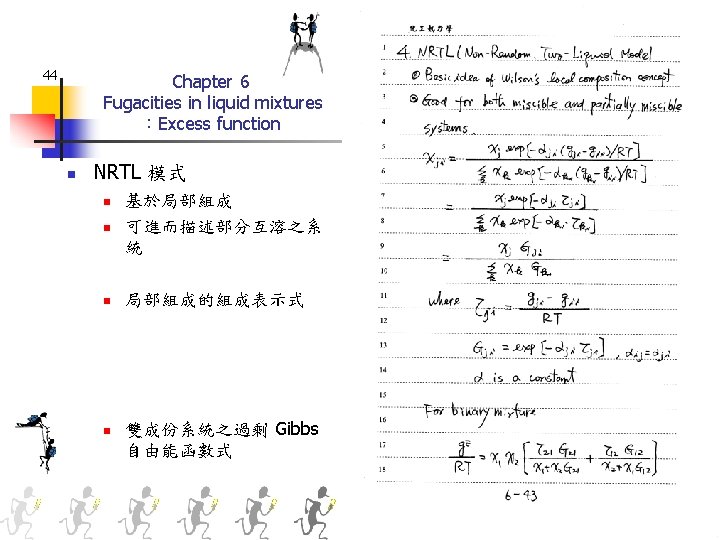 44
Chapter 6
Fugacities in liquid mixtures
：Excess function
NRTL 模式
基於局部組成
可進而描述部分互溶之系
統
局部組成的組成表示式
雙成份系統之過剩 Gibbs
自由能函數式
化工熱力學
1 4. NRTL (Non-Random Two-Liquid Model
2 ① Basic idea of Wilson's local composition concept
3 ② Good for both miscible and partially miscible
4 systems.
5 x_ji = x_j exp[-α_ji (g_ji - g_ii)/RT]
6 / Σ_k x_k exp[-α_ki (g_ki - g_ii)/RT]
7 = x_j exp[-α_ji τ_ji]
8 / Σ_k x_k exp[-α_ki τ_ki]
9 = x_j G_ji
10 / Σ_k x_k G_ki
11 where τ_ji = g_ji - g_ii
12 / RT
13 G_ji = exp[-α_ji τ_ji], α_ij = α_ji
14 α is a constant
15
16 For binary mixture
17 g^E / RT = x_1 x_2 [ τ_21 G_21 / x_1 + x_2 G_21 + τ_12 G_12 / x_2 + x_1 G_12 ]
18
6-43